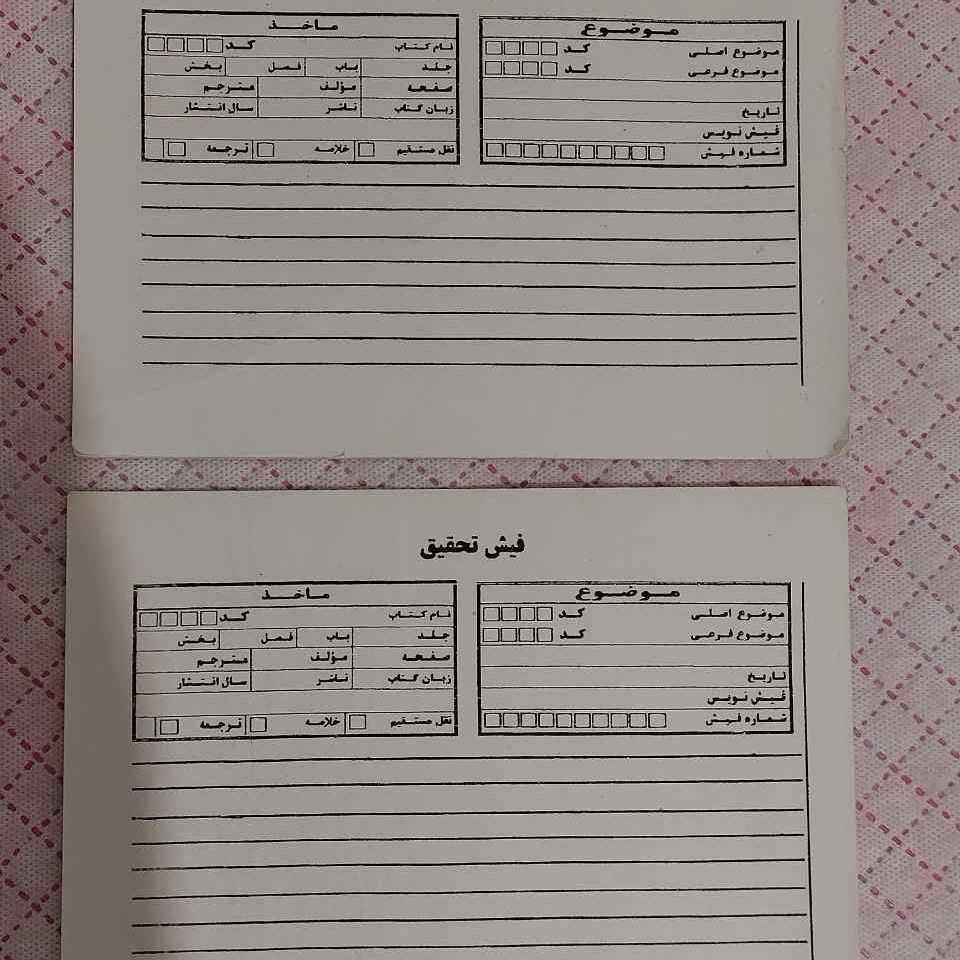 موضوع
موضوع اصلی کد
موضوع فرعی کد
تاریخ
فیش نویس
شماره فیش
مأخذ
نام کتاب کد
جلد باب فصل بخش
صفحه مؤلف مترجم
زبان کتاب ناشر سال انتشار
نقل مستقیم خلاصه ترجمه
فیش تحقیق
موضوع
موضوع اصلی کد
موضوع فرعی کد
تاریخ
فیش نویس
شماره فیش
مأخذ
نام کتاب کد
جلد باب فصل بخش
صفحه مؤلف مترجم
زبان کتاب ناشر سال انتشار
نقل مستقیم خلاصه ترجمه